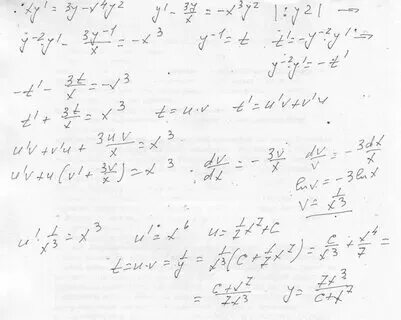 xy' = 3y - x⁴y² y' - 3y/x = -x³y² | : y² | →
y⁻²y' - 3y⁻¹/x = -x³ y⁻¹ = t t' = -y⁻²y' →
y⁻²y' = -t'
-t' - 3t/x = -x³
t' + 3t/x = x³ t = u·v t' = u'v + v'u
u'v + v'u + 3uv/x = x³
u'v + u(v' + 3v/x) = x³ dv/dx = -3v/x dv/v = -3dx/x
ln v = -3 ln x
v = 1/x³
u' 1/x³ = x³ u' = x⁶ u = 1/7 x⁷ + C
t = u·v = 1/y = 1/x³ (C + 1/7 x⁷) = C/x³ + x⁴/7 =
= C + x⁷/7x³ y = 7x³/C + x⁷